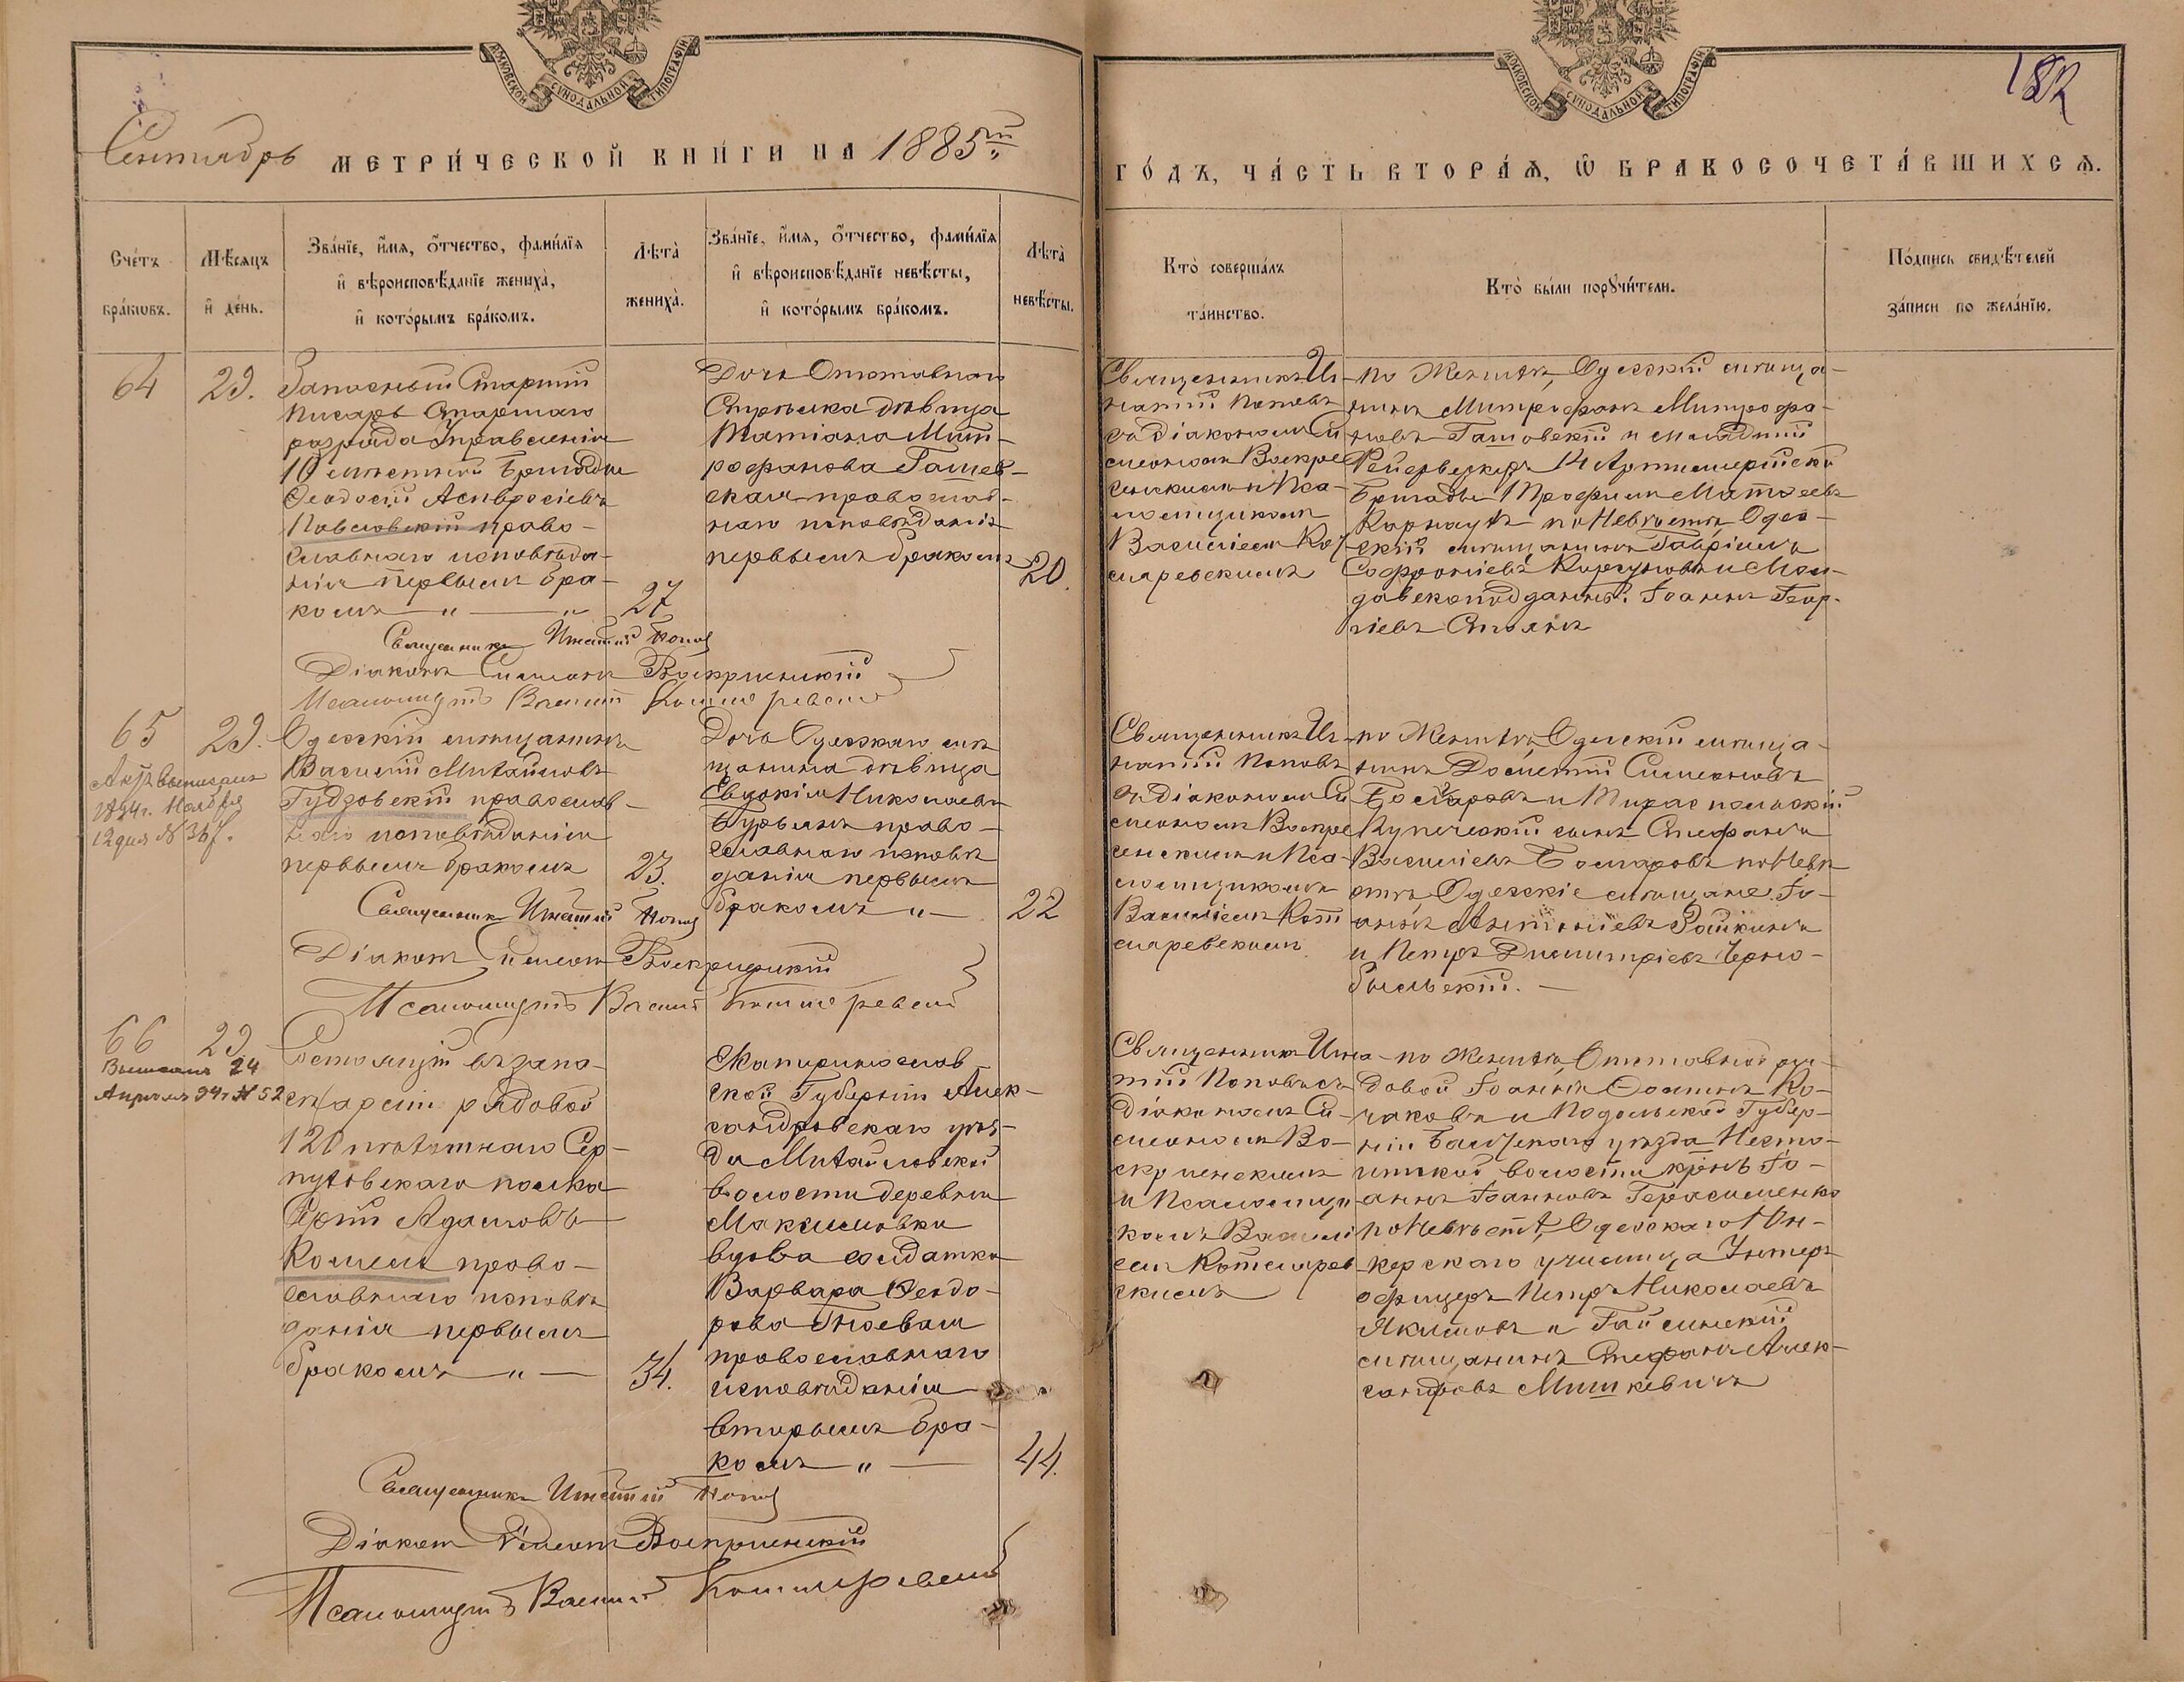 МОСКОВСКОЙ СѴНОДАЛЬНОЙ ТИПОГРАФІИ
МОСКОВСКОЙ СѴНОДАЛЬНОЙ ТИПОГРАФІИ
182
Сентябрь МЕТРИ́ЧЕСКОЙ КНИ́ГИ НА 1885й
ГО́ДЪ, ЧА́СТЬ ВТОРА́Ѧ, Ѽ БРАКОСОЧЕТА́ВШИХСѦ.
Сче́тъ бра́ковъ.
Мѣ́сяцъ и де́нь.
Зва́нїе, и́мя, о́тчество, фами́лїя и вѣроисповѣ́данїе жениха̀, и кото́рымъ бра́комъ.
Лѣта̀ жениха̀.
Зва́нїе, и́мя, о́тчество, фами́лїя и вѣроисповѣ́данїе невѣ́сты, и кото́рымъ бра́комъ.
Лѣта̀ невѣ́сты.
Кто̀ соверша́лъ та́инство.
Кто̀ бы́ли порꙋчи́тели.
По́дпись свидѣ́телей за́писи по жела́нїю.
64
29.
Запасный Старшій
писарь Старшаго
разряда Управленія
10 мѣстной Бригады
Ѳеодосій Амвросіевъ
Павловскій право-
славнаго исповѣда-
нія первымъ бра-
комъ „ — „
27
Дочь Отставнаго
Стрѣлка дѣвица
Татіана Мит-
рофанова Гашев-
ская православ-
наго исповѣданія
первымъ бракомъ
20.
Священникъ Иг-
натій Поповъ
съ діакономъ Си
меономъ Воскре
сенскимъ и Пса-
ломщикомъ
Василіемъ Кот
ляревскимъ
по Женихѣ, Одесскій мѣща-
нинъ Митрофанъ Митрофа-
новъ Гашовскій и младшій
Фейерверкеръ 14 Артиллерійской
Бригады Трофимъ Матѳеевъ
Карнаухъ по Невѣстѣ Одес-
скій мѣщанинъ Гавріилъ
Софроніевъ Корсуновъ и Мол-
давскоподданный Іоаннъ Геор-
гіевъ Стоянъ
Священникъ Игнатій Поповъ
Діаконъ Симеонъ Воскресенскій
Псаломщикъ Василій Котляревскій
65
29.
Актъ выписанъ
1894г. Ноября
12 дня № 367.
Одесскій мѣщанинъ
Василій Михайловъ
Гудзовскій православ-
наго исповѣданія
первымъ бракомъ
23.
Дочь Одесскаго мѣ
щанина дѣвица
Евдокія Николаева
Бурьянъ право-
славнаго исповѣ
данія первымъ
бракомъ „ —
22
Священникъ Иг-
натій Поповъ
съ діакономъ Си
меономъ Воскре
сенскимъ и Пса-
ломщикомъ
Василіемъ Кот
ляревскимъ
по Женихѣ, Одесскій мѣща-
нинъ Дометій Симеоновъ
Боларовъ и Тираспольскій
Купеческій сынъ Стефанъ
Василіевъ Боларовъ по Невѣ
стѣ Одесскіе мѣщане Іо-
аннъ Антоніевъ Райкинъ
и Петръ Димитріевъ Черно-
быльскій. —
Священникъ Игнатій Поповъ
Діаконъ Симеонъ Воскресенскій
Псаломщикъ Василій Котляревскій
66
29.
Выписанъ 24
Апрѣля 94г № 52
Состоящій въ запа-
сѣ арміи рядовой
120 пѣхотнаго Сер-
пуховскаго полка
Сергій Адамовъ
Комель право-
славнаго исповѣ
данія первымъ
бракомъ „ —
34.
Екатеринослав
ской Губерніи Алек-
сандровскаго уѣз-
да Михайловской
волости деревни
Максимовки
вдова солдатка
Варвара Ѳеодо-
рова Гноевая
православнаго
исповѣданія
вторымъ бра-
комъ „ —
44.
Священникъ Игна-
тій Поповъ съ
Діакономъ Си-
меономъ Во-
скресенскимъ
и Псаломщи
комъ Василі
емъ Котлярев
скимъ
по Женихѣ, Отставной ря-
довой Іоаннъ Ѳоминъ Ко-
чаковъ и Подольской Губер-
ніи Балтскаго уѣзда Песто-
итской волости крѣнъ Іо-
аннъ Іоанновъ Герасименко
по Невѣстѣ, Одесскаго Юн-
керскаго училища Унтеръ
офицеръ Петръ Николаевъ
Якимовъ и Гайсинскій
мѣщанинъ Стефанъ Алек-
сандровъ Мишкевичъ
Священникъ Игнатій Поповъ
Діаконъ Симеонъ Воскресенскій
Псаломщикъ Василій Котляревскій